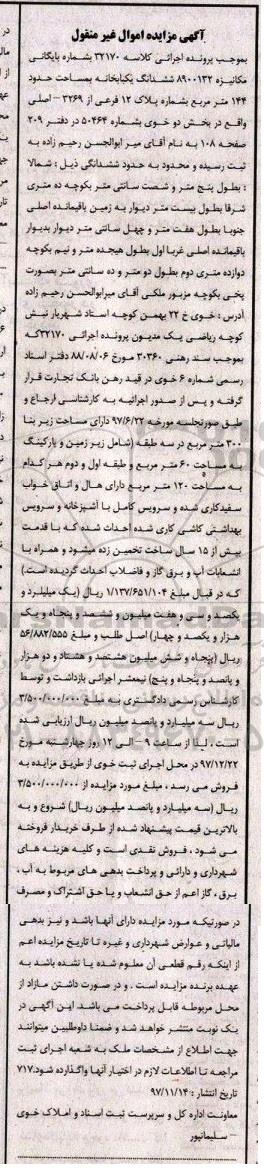 آگهی مزایده اموال غیر منقول
بموجب پرونده اجرائی کلاسه ۳۲۱۷۰ بشماره بایگانی
مکانیزه ۸۹۰۰۱۳۲ ششدانگ یکبابخانه بمساحت حدود
۱۴۴ متر مربع بشماره پلاک ۱۲ فرعی از ۳۲۶۹ - اصلی
واقع در بخش دو خوی بشماره ۵۰۴۶۴ در دفتر ۲۰۹
صفحه ۱۰۸ به نام آقای میر ابوالحسن رحیم زاده به
ثبت رسیده و محدود به حدود ششدانگی ذیل : شمالا
: بطول پنج متر و شصت سانتی متر بکوچه ده متری
شرقا بطول بیست متر دیوار به زمین باقیمانده اصلی
جنوبا بطول هفت متر و چهل سانتی متر دیوار بدیوار
باقیمانده اصلی غربا اول بطول هیجده متر و نیم بکوچه
دوازده متری دوم بطول دو متر و ده سانتی متر بصورت
پخی بکوچه مزبور ملکی آقای میرابوالحسن رحیم زاده
آدرس : خوی خ ۲۲ بهمن کوچه استاد شهریار نبش
کوچه ریاضی یک مدیون پرونده اجرائی ۳۲۱۷۰که
بموجب سند رهنی ۳۰۳۶۰ مورخ ۸۸/۰۸/۰۶ دفتر اسناد
رسمی شماره ۶ خوی در قید رهن بانک تجارت قرار
گرفته و پس از صدور اجرائیه به کارشناسی ارجاع و
طبق صورتجلسه مورخه ۹۷/۶/۲۲ دارای مساحت زیر بنا
۳۰۰ متر مربع در سه طبقه (شامل زیر زمین و پارکینگ
به مساحت ۶۰ متر مربع و طبقه اول و دوم هر کدام
به مساحت ۱۲۰ متر مربع دارای هال و اتاق خواب
سفیدکاری شده و سرویس کامل با آشپزخانه و سرویس
بهداشتی کاشی کاری شده احداث شده که با قدمت
بیش از ۱۵ سال ساخت تخمین زده میشود و همراه با
انشعابات آب و برق گاز و فاضلاب احداث گردیده است.)
که در قبال مبلغ ۱/۱۳۷/۶۵۱/۱۰۴ ریال (یک میلیارد و
یکصد و سی و هفت میلیون و ششصد و پنجاه و یک
هزار و یکصد و چهار) اصل طلب و مبلغ ۵۶/۸۸۲/۵۵۵
ریال (پنجاه و شش میلیون هشتصد و هشتاد و دو هزار
و پانصد و پنجاه و پنج) نیمعشر اجرائی بازداشت و توسط
کارشناس رسمی دادگستری به مبلغ ۳/۵۰۰/۰۰۰/۰۰۰
ریال سه میلیارد و پانصد میلیون ریال ارزیابی شده
است ، لذا از ساعت ۹ الی ۱۲ روز چهارشنبه مورخ
۹۷/۱۲/۲۲ در محل اجرای ثبت خوی از طریق مزایده به
فروش می رسد ، مبلغ مورد مزایده از ۳/۵۰۰/۰۰۰/۰۰۰
ریال (سه میلیارد و پانصد میلیون ریال) شروع و به
بالاترین قیمت پیشنهاد شده از طرف خریدار فروخته
می شود ، فروش نقدی است و کلیه هزینه های
شهرداری و دارائی و پرداخت بدهی های مربوط به آب ،
برق ، گاز اعم از حق انشعاب و یا حق اشتراک و مصرف
در صورتیکه مورد مزایده دارای آنها باشد و نیز بدهی
مالیاتی و عوارض شهرداری و غیره تا تاریخ مزایده اعم
از اینکه رقم قطعی آن معلوم شده یا نشده باشد به
عهده برنده مزایده است . و در صورت داشتن مازاد از
محل مربوطه قابل پرداخت می باشد این آگهی در
یک نوبت منتشر خواهد شد و ضمنا داوطلبین میتوانند
جهت اطلاع از مشخصات ملک به شعبه اجرای ثبت
مراجعه تا اطلاعات لازم در اختیار آنها واگذارده شود.۷۱۷
تاریخ انتشار : ۹۷/۱۱/۱۴
معاونت اداره کل و سرپرست ثبت اسناد و املاک خوی
- سلیمانپور